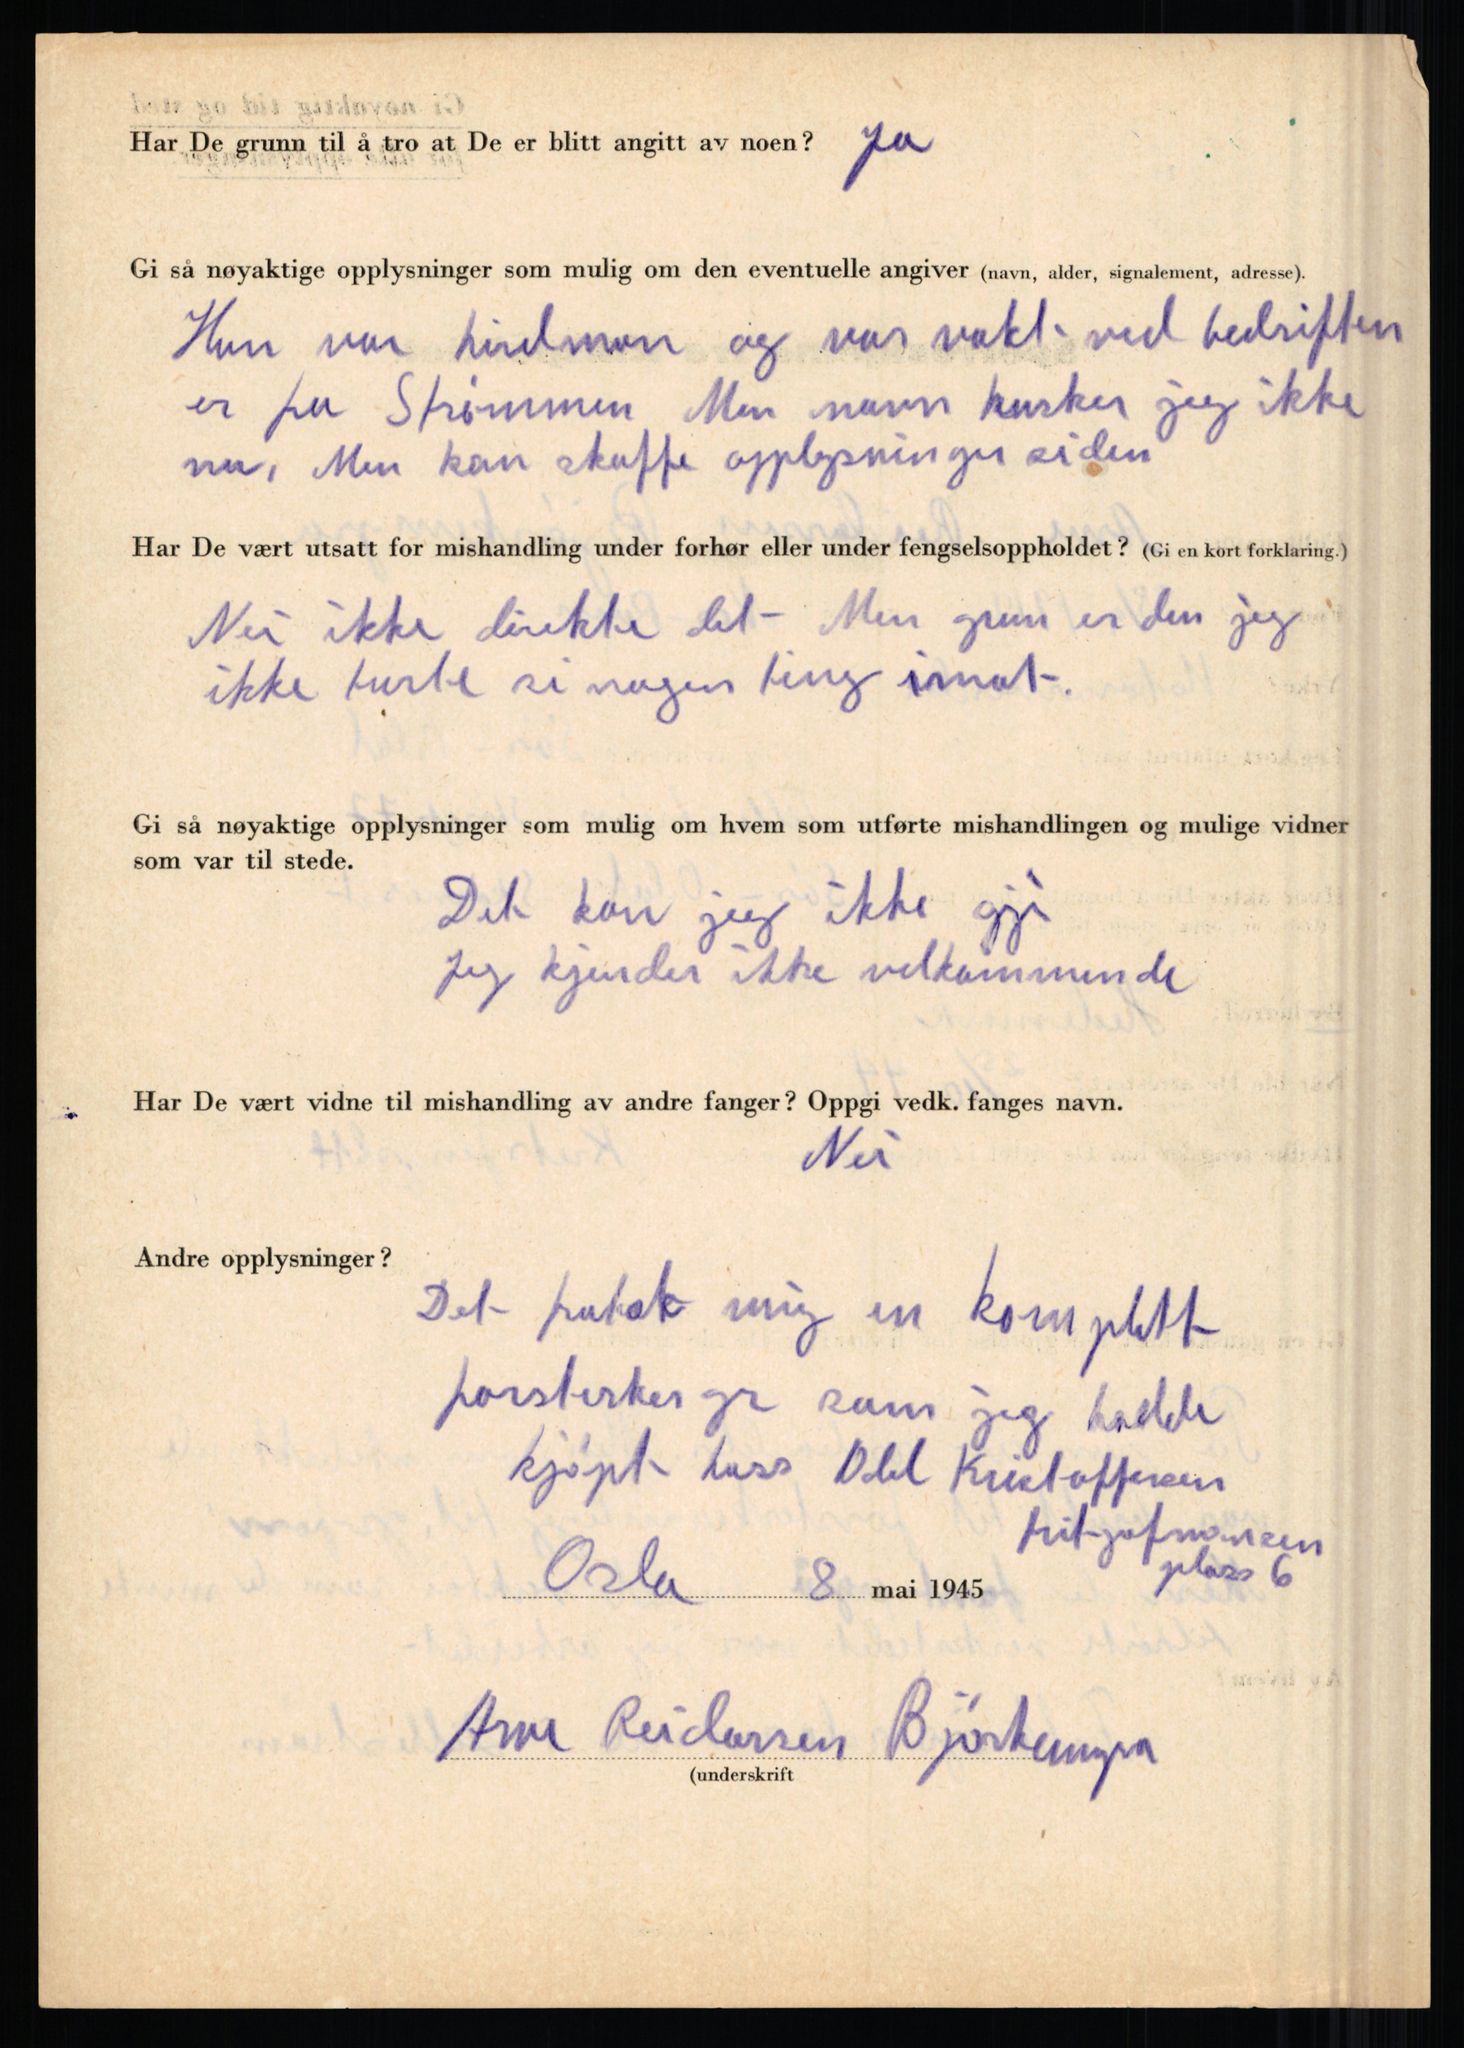 Gi nøyaktig tid og sted
for alle opplysninger
Har De grunn til å tro at De er blitt angitt av noen? Ja
Gi så nøyaktige opplysninger som mulig om den eventuelle angiver (navn, alder, signalement, adresse).
Han var hirdman og var vakt ved bedriften
er fra Strømmen Men navn husker jeg ikke
nu, Men kan skaffe opplysninger siden
Har De vært utsatt for mishandling under forhør eller under fengselsoppholdet? (Gi en kort forklaring.)
Nei ikke direkte det Men grun er den jeg
ikke turte si nogen ting imot.
Gi så nøyaktige opplysninger som mulig om hvem som utførte mishandlingen og mulige vidner
som var til stede.
Det kan jeg ikke gji
Jeg kjender ikke velkommende
Har De vært vidne til mishandling av andre fanger? Oppgi vedk. fanges navn.
Nei
Andre opplysninger?
Det fratok mig en komplett
forsterker som jeg hadde
kjøpt hoss Odd Kristoffersen
fritjofnansen
plass 6
Oslo 8 mai 1945
Arne Reidarsen Björkemyra
(underskrift